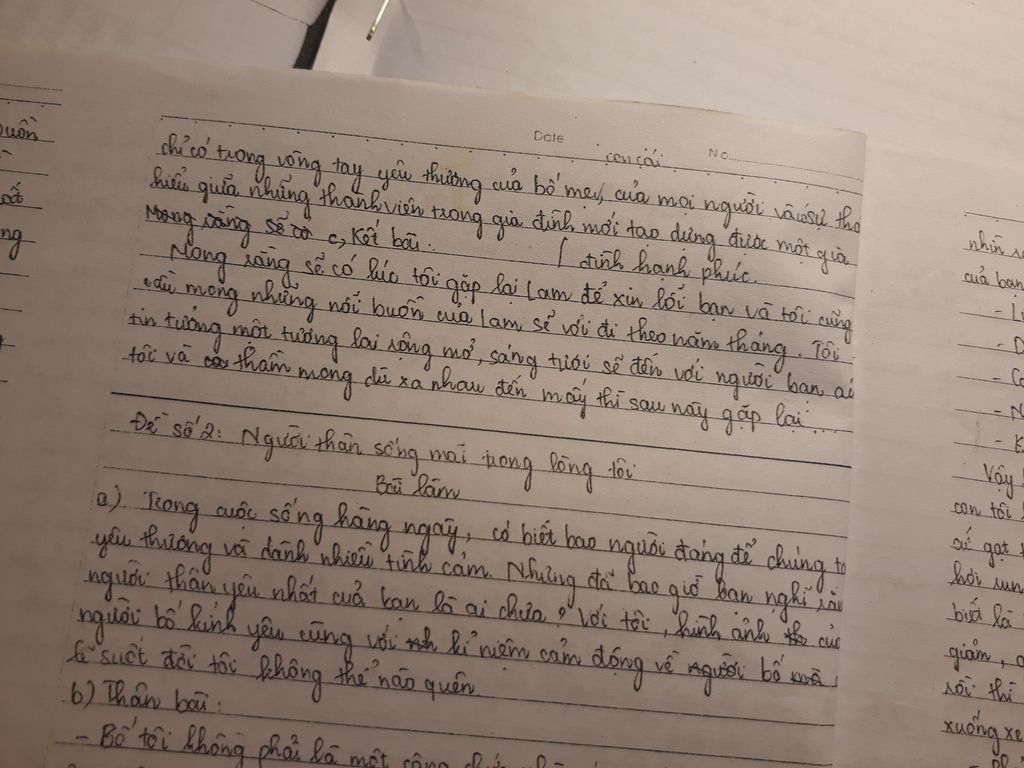 Date No
con cái
chỉ có trong vòng tay yêu thương của bố mẹ, của mọi người và sự thô
hiểu giữa những thành viên trong gia đình mới tạo dựng được một gia
đình hạnh phúc.
Mong rằng sẽ có c, Kết bài.
Mong rằng sẽ có lúc tôi gặp lại Lam để xin lỗi bạn và tôi cũng
cầu mong những nỗi buồn của Lam sẽ vơi đi theo năm tháng. Tôi
tin tưởng một tương lai rộng mở, sáng tươi sẽ đến với người bạn ấ
tôi và thầm mong dù xa nhau đến mấy thì sau này gặp lại...
Đề số 2: Người thân sống mãi trong lòng tôi
Bài làm
a) Trong cuộc sống hằng ngày, có biết bao người đáng để chúng t
yêu thương và dành nhiều tình cảm. Nhưng đã bao giờ bạn nghĩ rằ
người thân yêu nhất của bạn là ai chưa? Với tôi, hình ảnh củ
người bố kính yêu cùng với kỉ niệm cảm động về người bố mà
lẽ suốt đời tôi không thể nào quên.
b) Thân bài:
- Bố tôi không phải là một công
uồn
ất
ng
nhìn
của bạn
- L
- D
- C
- N
- K
Vậy
con tôi
gạt
hơi
biết là
giảm,
rồi thì
xuống xe